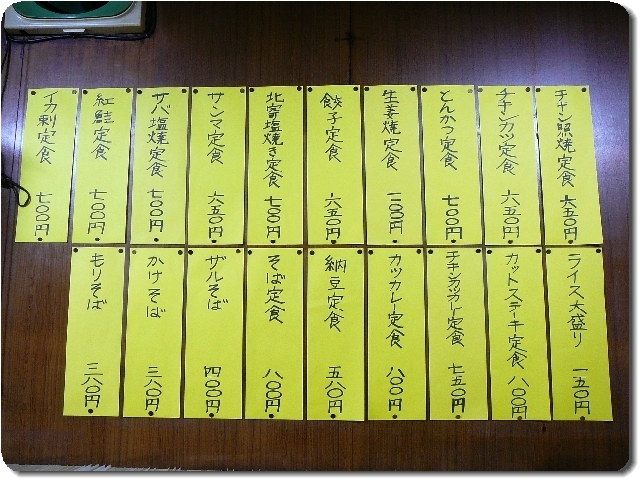 チキン照焼定食 六五〇円
チキンカツ定食 六五〇円
とんかつ定食 七〇〇円
生姜焼定食
餃子定食 六五〇円
北寄塩焼き定食 七〇〇円
サンマ定食 六五〇円
サバ塩焼定食 七〇〇円
紅鮭定食 七〇〇円
イカ刺定食 七〇〇円
ライス大盛り 一五〇円
カットステーキ定食 八〇〇円
チキンカツカレー定食 七五〇円
カツカレー定食 八〇〇円
納豆定食 五八〇円
そば定食 八〇〇円
ザルそば 四〇〇円
かけそば 三八〇円
もりそば 三八〇円